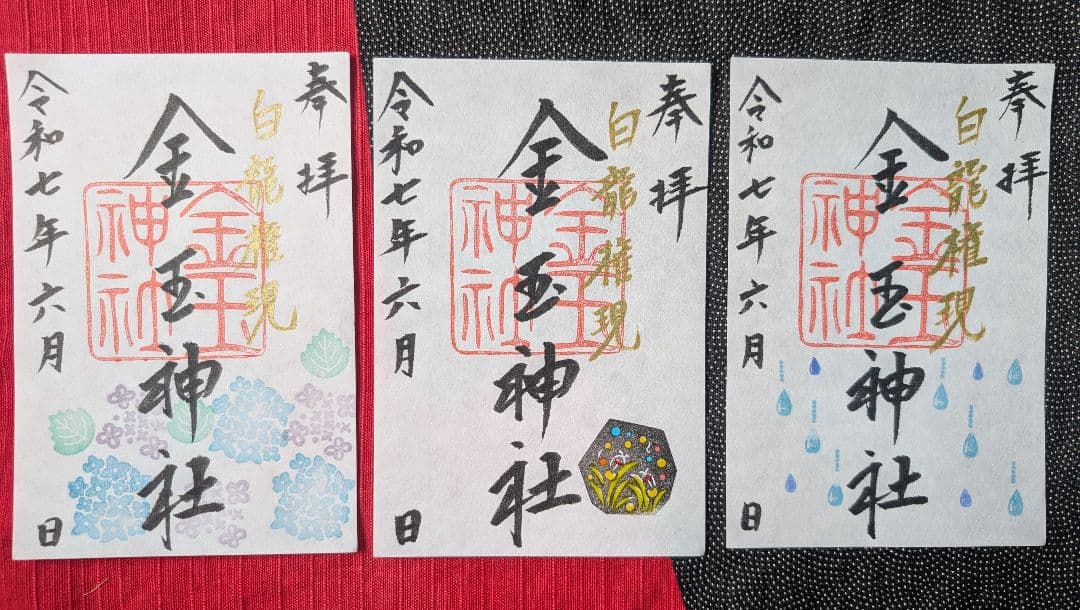 奉拝
白龍権現
金玉神社
金玉神社
令和七年六月 日
奉拝
白龍権現
金玉神社
金玉神社
令和七年六月 日
奉拝
白龍権現
金玉神社
金玉神社
令和七年六月 日